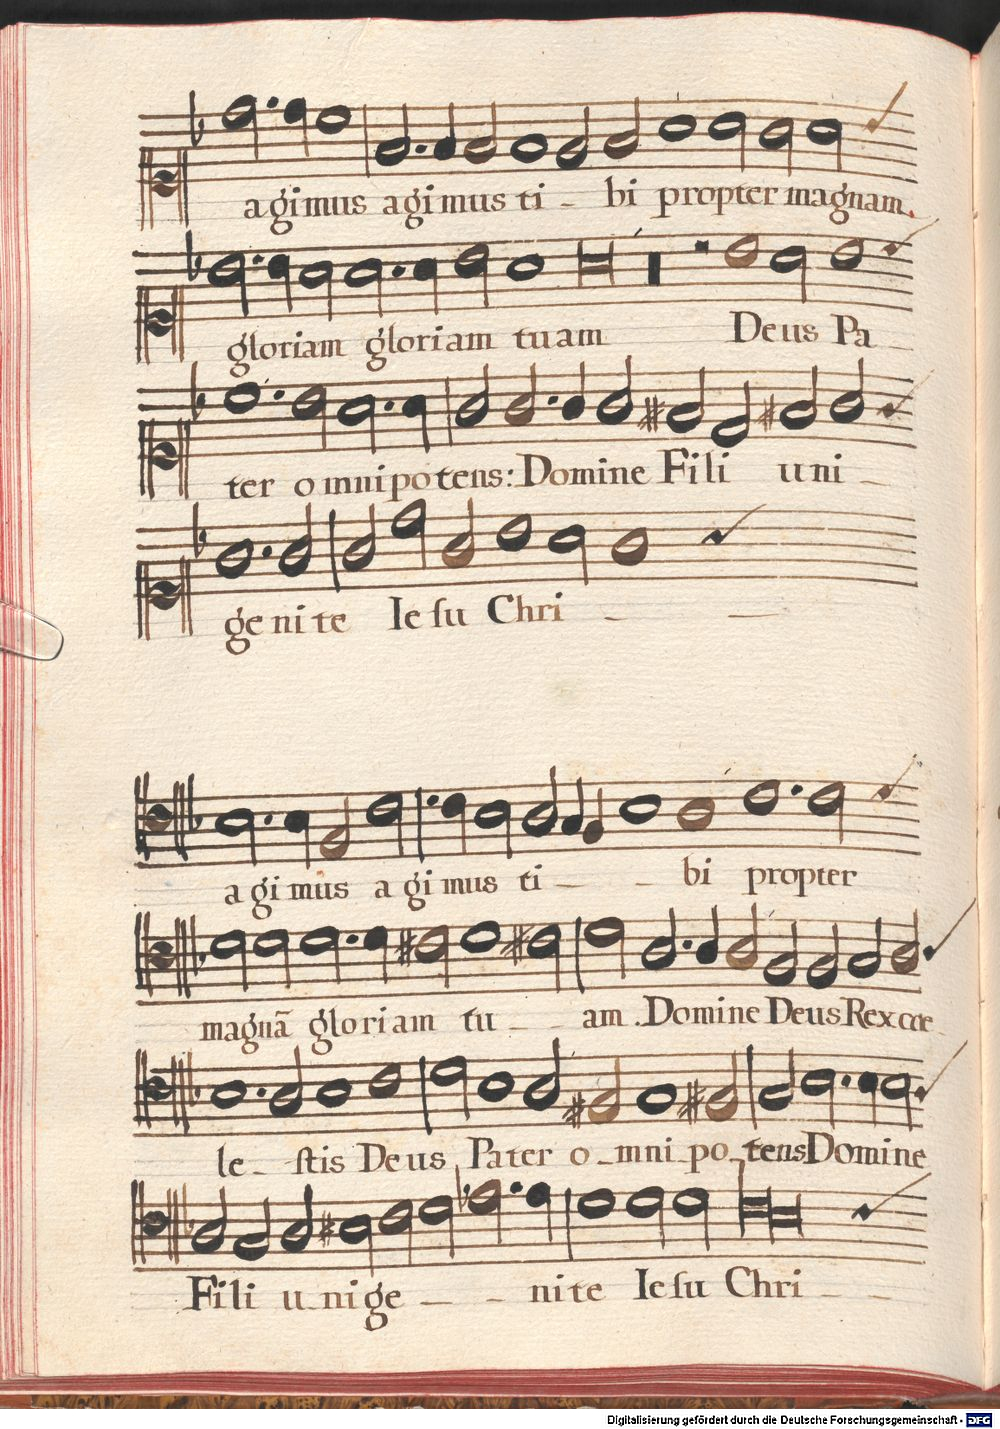 agimus agimus ti - bi propter magnam.
gloriam gloriam tuam Deus Pa -
ter omnipotens: Domine Fili uni -
ge nite Iesu Chri - -
agimus agimus ti - - bi propter
magnã gloriam tu - - am. Domine Deus Rex cœ -
le - stis Deus Pater o - mni - po - tens Domine
Fili u - nige - - nite Iesu Chri - -
Digitalisierung gefördert durch die Deutsche Forschungsgemeinschaft - DFG